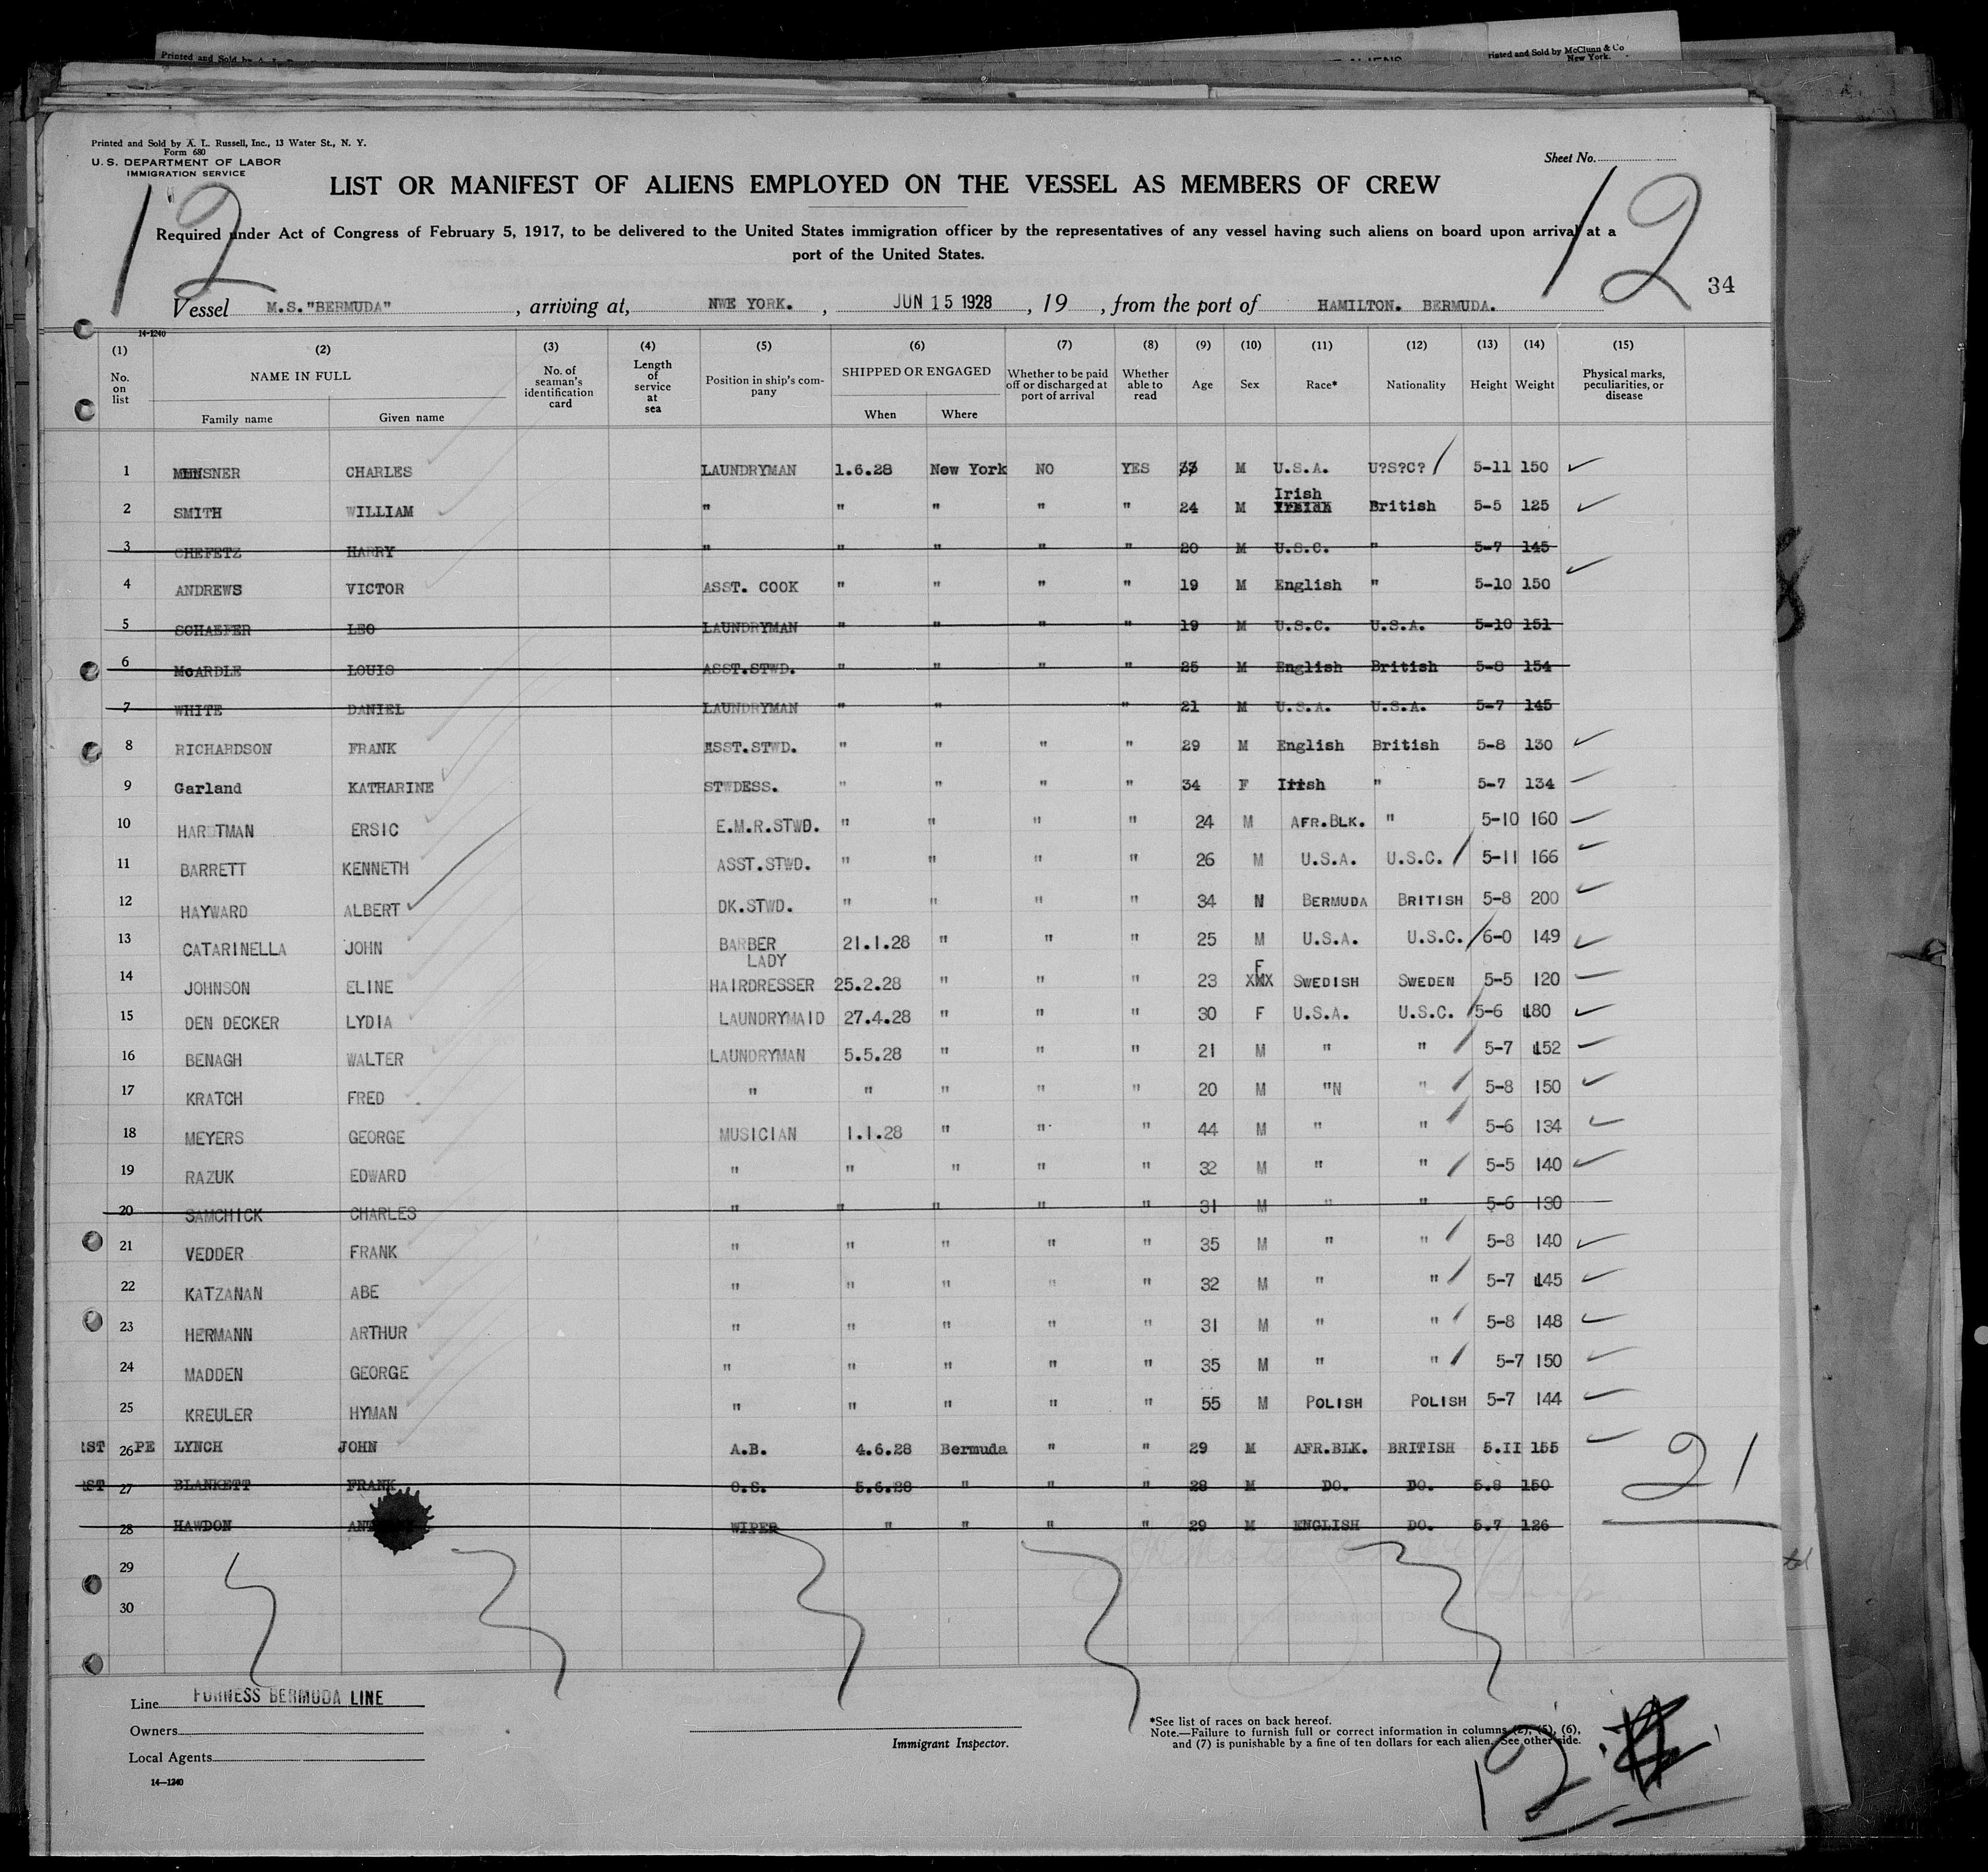 Printed and Sold by
rinted and Sold by McClunn & Co
New York.
Printed and Sold by A. L. Russell, Inc., 13 Water St., N. Y.
Form 680
U. S. DEPARTMENT OF LABOR
IMMIGRATION SERVICE
Sheet No.
LIST OR MANIFEST OF ALIENS EMPLOYED ON THE VESSEL AS MEMBERS OF CREW
12 12
Required under Act of Congress of February 5, 1917, to be delivered to the United States immigration officer by the representatives of any vessel having such aliens on board upon arrival at a
port of the United States.
34
Vessel M.S."BERMUDA" , arriving at, NWE YORK. , JUN 15 1928 , 19 , from the port of HAMILTON. BERMUDA.
14-1240
(1) (2) (3) (4) (5) (6) (7) (8) (9) (10) (11) (12) (13) (14) (15)
No. on list NAME IN FULL No. of seaman's identification card Length of service at sea Position in ship's company SHIPPED OR ENGAGED Whether to be paid off or discharged at port of arrival Whether able to read Age Sex Race* Nationality Height Weight Physical marks, peculiarities, or disease
Family name Given name When Where
1 SNER CHARLES LAUNDRYMAN 1.6.28 New York NO YES 33 M U.S.A. U?S?C? / 5-11 150
Irish
2 SMITH WILLIAM " " " " " 24 M British 5-5 125
3 CHEFETZ HARRY " " " " " 20 M U.S.C. " 5-7 145
4 ANDREWS VICTOR ASST. COOK " " " " 19 M English " 5-10 150
5 SCHAEFER LEO LAUNDRYMAN " " " " 19 M U.S.C. U.S.A. 5-10 151
6 McARDLE LOUIS ASST.STWD. " " " " 25 M English British 5-8 154
7 WHITE DANIEL LAUNDRYMAN " " " 21 M U.S.A. U.S.A. 5-7 145
8 RICHARDSON FRANK ASST.STWD. " " " " 29 M English British 5-8 130
9 Garland KATHARINE STWDESS. " " " " 34 F Irish " 5-7 134
10 HARDTMAN ERSIC E.M.R.STWD. " " " " 24 M AFR.BLK. " 5-10 160
11 BARRETT KENNETH ASST.STWD. " " " " 26 M U.S.A. U.S.C. / 5-11 166
12 HAYWARD ALBERT DK.STWD. " " " " 34 N BERMUDA BRITISH 5-8 200
13 CATARINELLA JOHN BARBER 21.1.28 " " " 25 M U.S.A. U.S.C. / 6-0 149
LADY F
14 JOHNSON ELINE HAIRDRESSER 25.2.28 " " " 23 XMX SWEDISH SWEDEN 5-5 120
15 DEN DECKER LYDIA LAUNDRYMAID 27.4.28 " " " 30 F U.S.A. U.S.C. / 5-6 180
16 BENAGH WALTER LAUNDRYMAN 5.5.28 " " " 21 M " " / 5-7 152
17 KRATCH FRED . " " " " " 20 M "N " / 5-8 150
18 MEYERS GEORGE MUSICIAN 1.1.28 " " " 44 M " " / 5-6 134
19 RAZUK EDWARD " " " " " 32 M " " / 5-5 140
20 SAMCHICK CHARLES " " " " " 31 M " " 5-6 130
21 VEDDER FRANK " " " " " 35 M " " / 5-8 140
22 KATZANAN ABE " " " " " 32 M " " / 5-7 145
23 HERMANN ARTHUR " " " " " 31 M " " / 5-8 148
24 MADDEN GEORGE " " " " " 35 M " " / 5-7 150
25 KREULER HYMAN " " " " " 55 M POLISH POLISH 5-7 144
1ST 26 PE LYNCH JOHN A.B. 4.6.28 Bermuda " " 29 M AFR.BLK. BRITISH 5.II 155
1ST 27 BLANKETT FRANK O.S. 5.6.28 " " " 28 M DO. DO. 5.8 150
21
28 HAWDON WIPER " " " " 29 M ENGLISH DO. 5.7 126
29
30
Line FURNESS BERMUDA LINE
Owners
Local Agents
14—1240
Immigrant Inspector.
*See list of races on back hereof.
Note.—Failure to furnish full or correct information in columns (2), (5), (6),
and (7) is punishable by a fine of ten dollars for each alien. See other side.
12